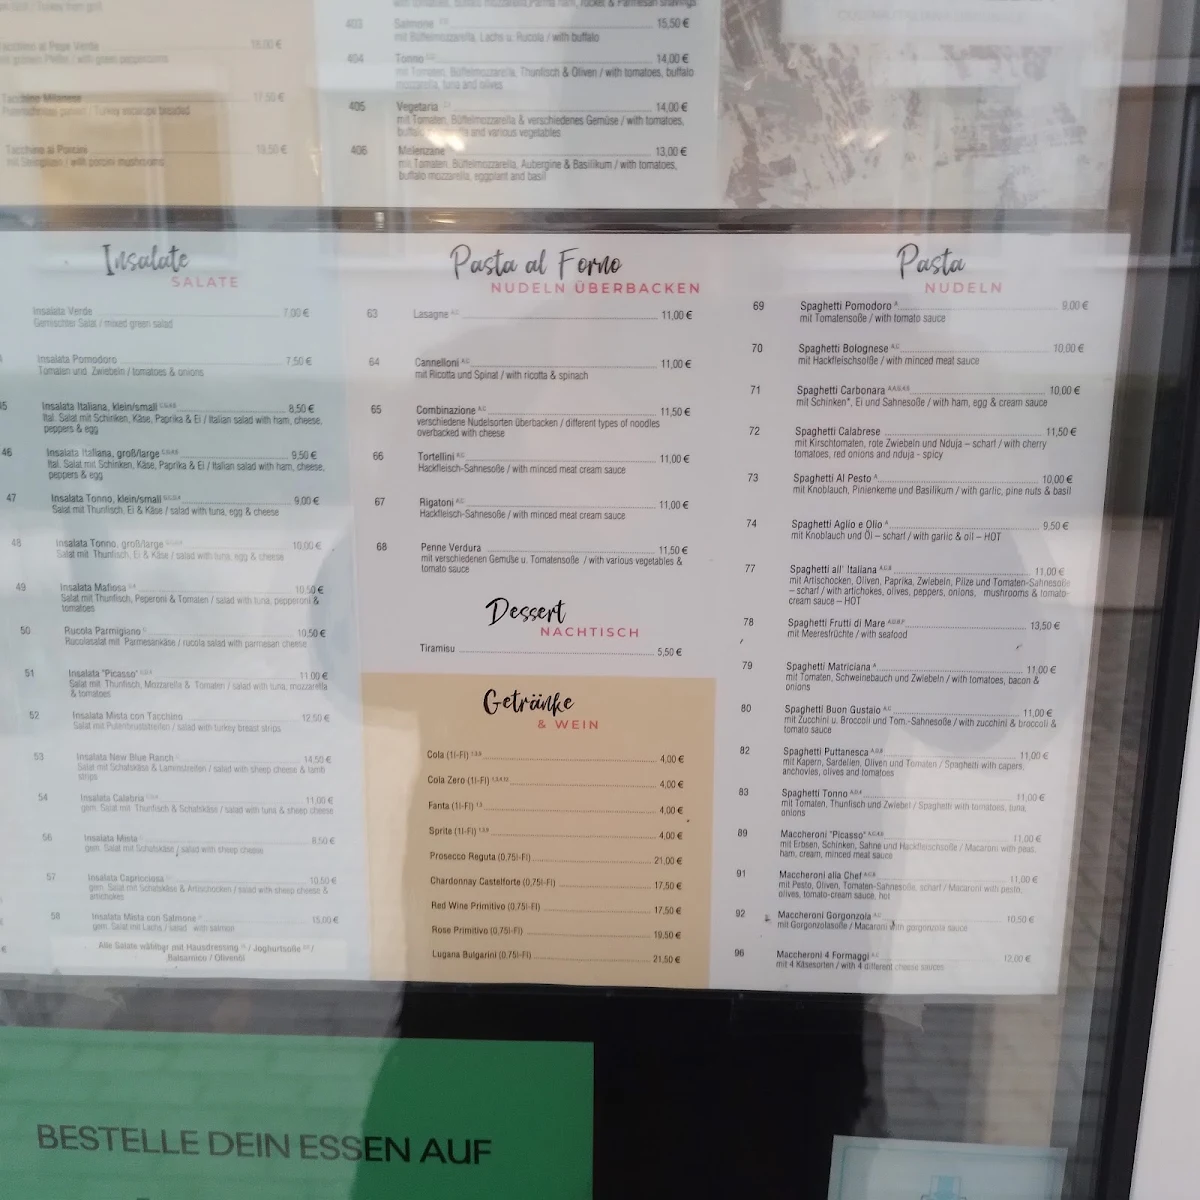 Tacchino al Pepe Verde 18,00 €
Tacchino Milanese 17,50 €
Tacchino ai Porcini 19,50 €
mit Steinpilzen / with porcini mushrooms
403 Salmone 15,50 €
mit Büffelmozzarella, Lachs u. Rucola / with buffalo
404 Tonno 14,00 €
mit Tomaten, Büffelmozzarella, Thunfisch & Oliven / with tomatoes, buffalo
mozzarella, tuna and olives
405 Vegetaria 14,00 €
mit Tomaten, Büffelmozzarella & verschiedenes Gemüse / with tomatoes,
and various vegetables
406 Melenzane 13,00 €
mit Tomaten, Büffelmozzarella, Aubergine & Basilikum / with tomatoes,
buffalo mozzarella, eggplant and basil
Insalate
SALATE
Insalata Verde 7,00 €
Gemischter Salat / mixed green salad
Insalata Pomodoro 7,50 €
Tomaten und Zwiebeln / tomatoes & onions
Insalata Italiana, klein/small 8,50 €
Ital. Salat mit Schinken, Käse, Paprika & Ei / Italian salad with ham, cheese,
peppers & egg
46 Insalata Italiana, groß/large 9,50 €
Ital. Salat mit Schinken, Käse, Paprika & Ei / Italian salad with ham, cheese,
peppers & egg
47 Insalata Tonno, klein/small 9,00 €
Salat mit Thunfisch, Ei & Käse / salad with tuna, egg & cheese
48 Insalata Tonno, groß/large 10,00 €
Salat mit Thunfisch, Ei & Käse / salad with tuna, egg & cheese
49 Insalata Mafiosa 10,50 €
Salat mit Thunfisch, Peperoni & Tomaten / salad with tuna, pepperoni &
tomatoes
50 Rucola Parmigiano 10,50 €
Rucolasalat mit Parmesankäse / rucola salad with parmesan cheese
51 Insalata "Picasso" 11,00 €
Salat mit Thunfisch, Mozzarella & Tomaten / salad with tuna, mozzarella
& tomatoes
52 Insalata Mista con Tacchino 12,50 €
Salat mit Putenbruststreifen / salad with turkey breast strips
53 Insalata New Blue Ranch 14,50 €
Salat mit Schafskäse & Lammstreifen / salad with sheep cheese & lamb
strips
54 Insalata Calabria 11,00 €
gem. Salat mit Thunfisch & Schafskäse / salad with tuna & sheep cheese
56 Insalata Mista 8,50 €
gem. Salat mit Schafskäse / salad with sheep cheese
57 Insalata Capricciosa 10,50 €
gem. Salat mit Schafskäse & Artischocken / salad with sheep cheese &
artichokes
58 Insalata Mista con Salmone 15,00 €
gem. Salat mit Lachs / salad with salmon
Alle Salate wahlweise mit Hausdressing / Joghurtsoße /
Balsamico / Olivenöl
Pasta al Forno
NUDELN ÜBERBACKEN
63 Lasagne A,C 11,00 €
64 Cannelloni A,C 11,00 €
mit Ricotta und Spinat / with ricotta & spinach
65 Combinazione A,C 11,50 €
verschiedene Nudelsorten überbacken / different types of noodles
overbacked with cheese
66 Tortellini A,C 11,00 €
Hackfleisch-Sahnesoße / with minced meat cream sauce
67 Rigatoni A,C 11,00 €
Hackfleisch-Sahnesoße / with minced meat cream sauce
68 Penne Verdura 11,50 €
mit verschiedenen Gemüse u. Tomatensoße / with various vegetables &
tomato sauce
Dessert
NACHTISCH
Tiramisu 5,50 €
Getränke
& WEIN
Cola (1l-Fl) 4,00 €
Cola Zero (1l-Fl) 4,00 €
Fanta (1l-Fl) 4,00 €
Sprite (1l-Fl) 4,00 €
Prosecco Reguta (0,75l-Fl) 21,00 €
Chardonnay Castelforte (0,75l-Fl) 17,50 €
Red Wine Primitivo (0,75l-Fl) 17,50 €
Rose Primitivo (0,75l-Fl) 19,50 €
Lugana Bulgarini (0,75l-Fl) 21,50 €
Pasta
NUDELN
69 Spaghetti Pomodoro A 9,00 €
mit Tomatensoße / with tomato sauce
70 Spaghetti Bolognese A,C 10,00 €
mit Hackfleischsoße / with minced meat sauce
71 Spaghetti Carbonara 10,00 €
mit Schinken*, Ei und Sahnesoße / with ham, egg & cream sauce
72 Spaghetti Calabrese 11,50 €
mit Kirschtomaten, rote Zwiebeln und Nduja – scharf / with cherry
tomatoes, red onions and nduja - spicy
73 Spaghetti Al Pesto A 10,00 €
mit Knoblauch, Pinienkerne und Basilikum / with garlic, pine nuts & basil
74 Spaghetti Aglio e Olio A 9,50 €
mit Knoblauch und Öl – scharf / with garlic & oil – HOT
77 Spaghetti all' Italiana 11,00 €
mit Artischocken, Oliven, Paprika, Zwiebeln, Pilze und Tomaten-Sahnesoße
– scharf / with artichokes, olives, peppers, onions, mushrooms & tomato-
cream sauce – HOT
78 Spaghetti Frutti di Mare 13,50 €
mit Meeresfrüchte / with seafood
79 Spaghetti Matriciana A 11,00 €
mit Tomaten, Schweinebauch und Zwiebeln / with tomatoes, bacon &
onions
80 Spaghetti Buon Gustaio 11,00 €
mit Zucchini u. Broccoli und Tom.-Sahnesoße / with zucchini & broccoli &
tomato sauce
82 Spaghetti Puttanesca 11,00 €
mit Kapern, Sardellen, Oliven und Tomaten / Spaghetti with capers,
anchovies, olives and tomatoes
83 Spaghetti Tonno 11,00 €
mit Tomaten, Thunfisch und Zwiebel / Spaghetti with tomatoes, tuna,
onions
89 Maccheroni "Picasso" 11,00 €
mit Erbsen, Schinken, Sahne und Hackfleischsoße / Macaroni with peas,
ham, cream, minced meat sauce
91 Maccheroni alla Chef 11,00 €
mit Pesto, Oliven, Tomaten-Sahnesoße, scharf / Macaroni with pesto,
olives, tomato-cream sauce, hot
92 Maccheroni Gorgonzola 10,50 €
mit Gorgonzolasoße / Macaroni with gorgonzola sauce
96 Maccheroni 4 Formaggi 12,00 €
mit 4 Käsesorten / with 4 different cheese sauces
BESTELLE DEIN ESSEN AUF